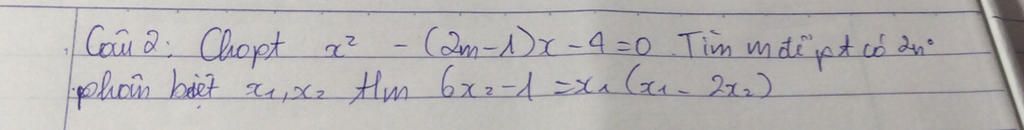 Câu 2: Cho pt x² - (2m-1)x - 4 = 0. Tìm m để pt có 2n°
phân biệt x₁, x₂ t/m 6x₂ - 1 = x₁ (x₁ - 2x₂)